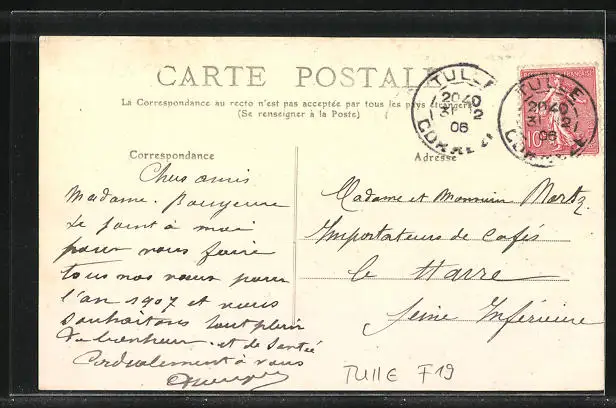 CARTE POSTALE
La Correspondance au recto n'est pas acceptée par tous les pays étrangers
(Se renseigner à la Poste)
TULLE
20 40
31 12
06
CORREZE
TULLE
20 40
31 12
06
CORREZE
10
Correspondance
Adresse
Chers amis
Madame
se joint à moi
pour vous faire
tous nos vœux pour
l'an 1907 et vous
souhaitons tout plein
du bonheur et de santé
Cordialement à vous
Madame et Monsieur
Importateurs de Cafés
le Havre
Seine Inférieure
TULLE F19